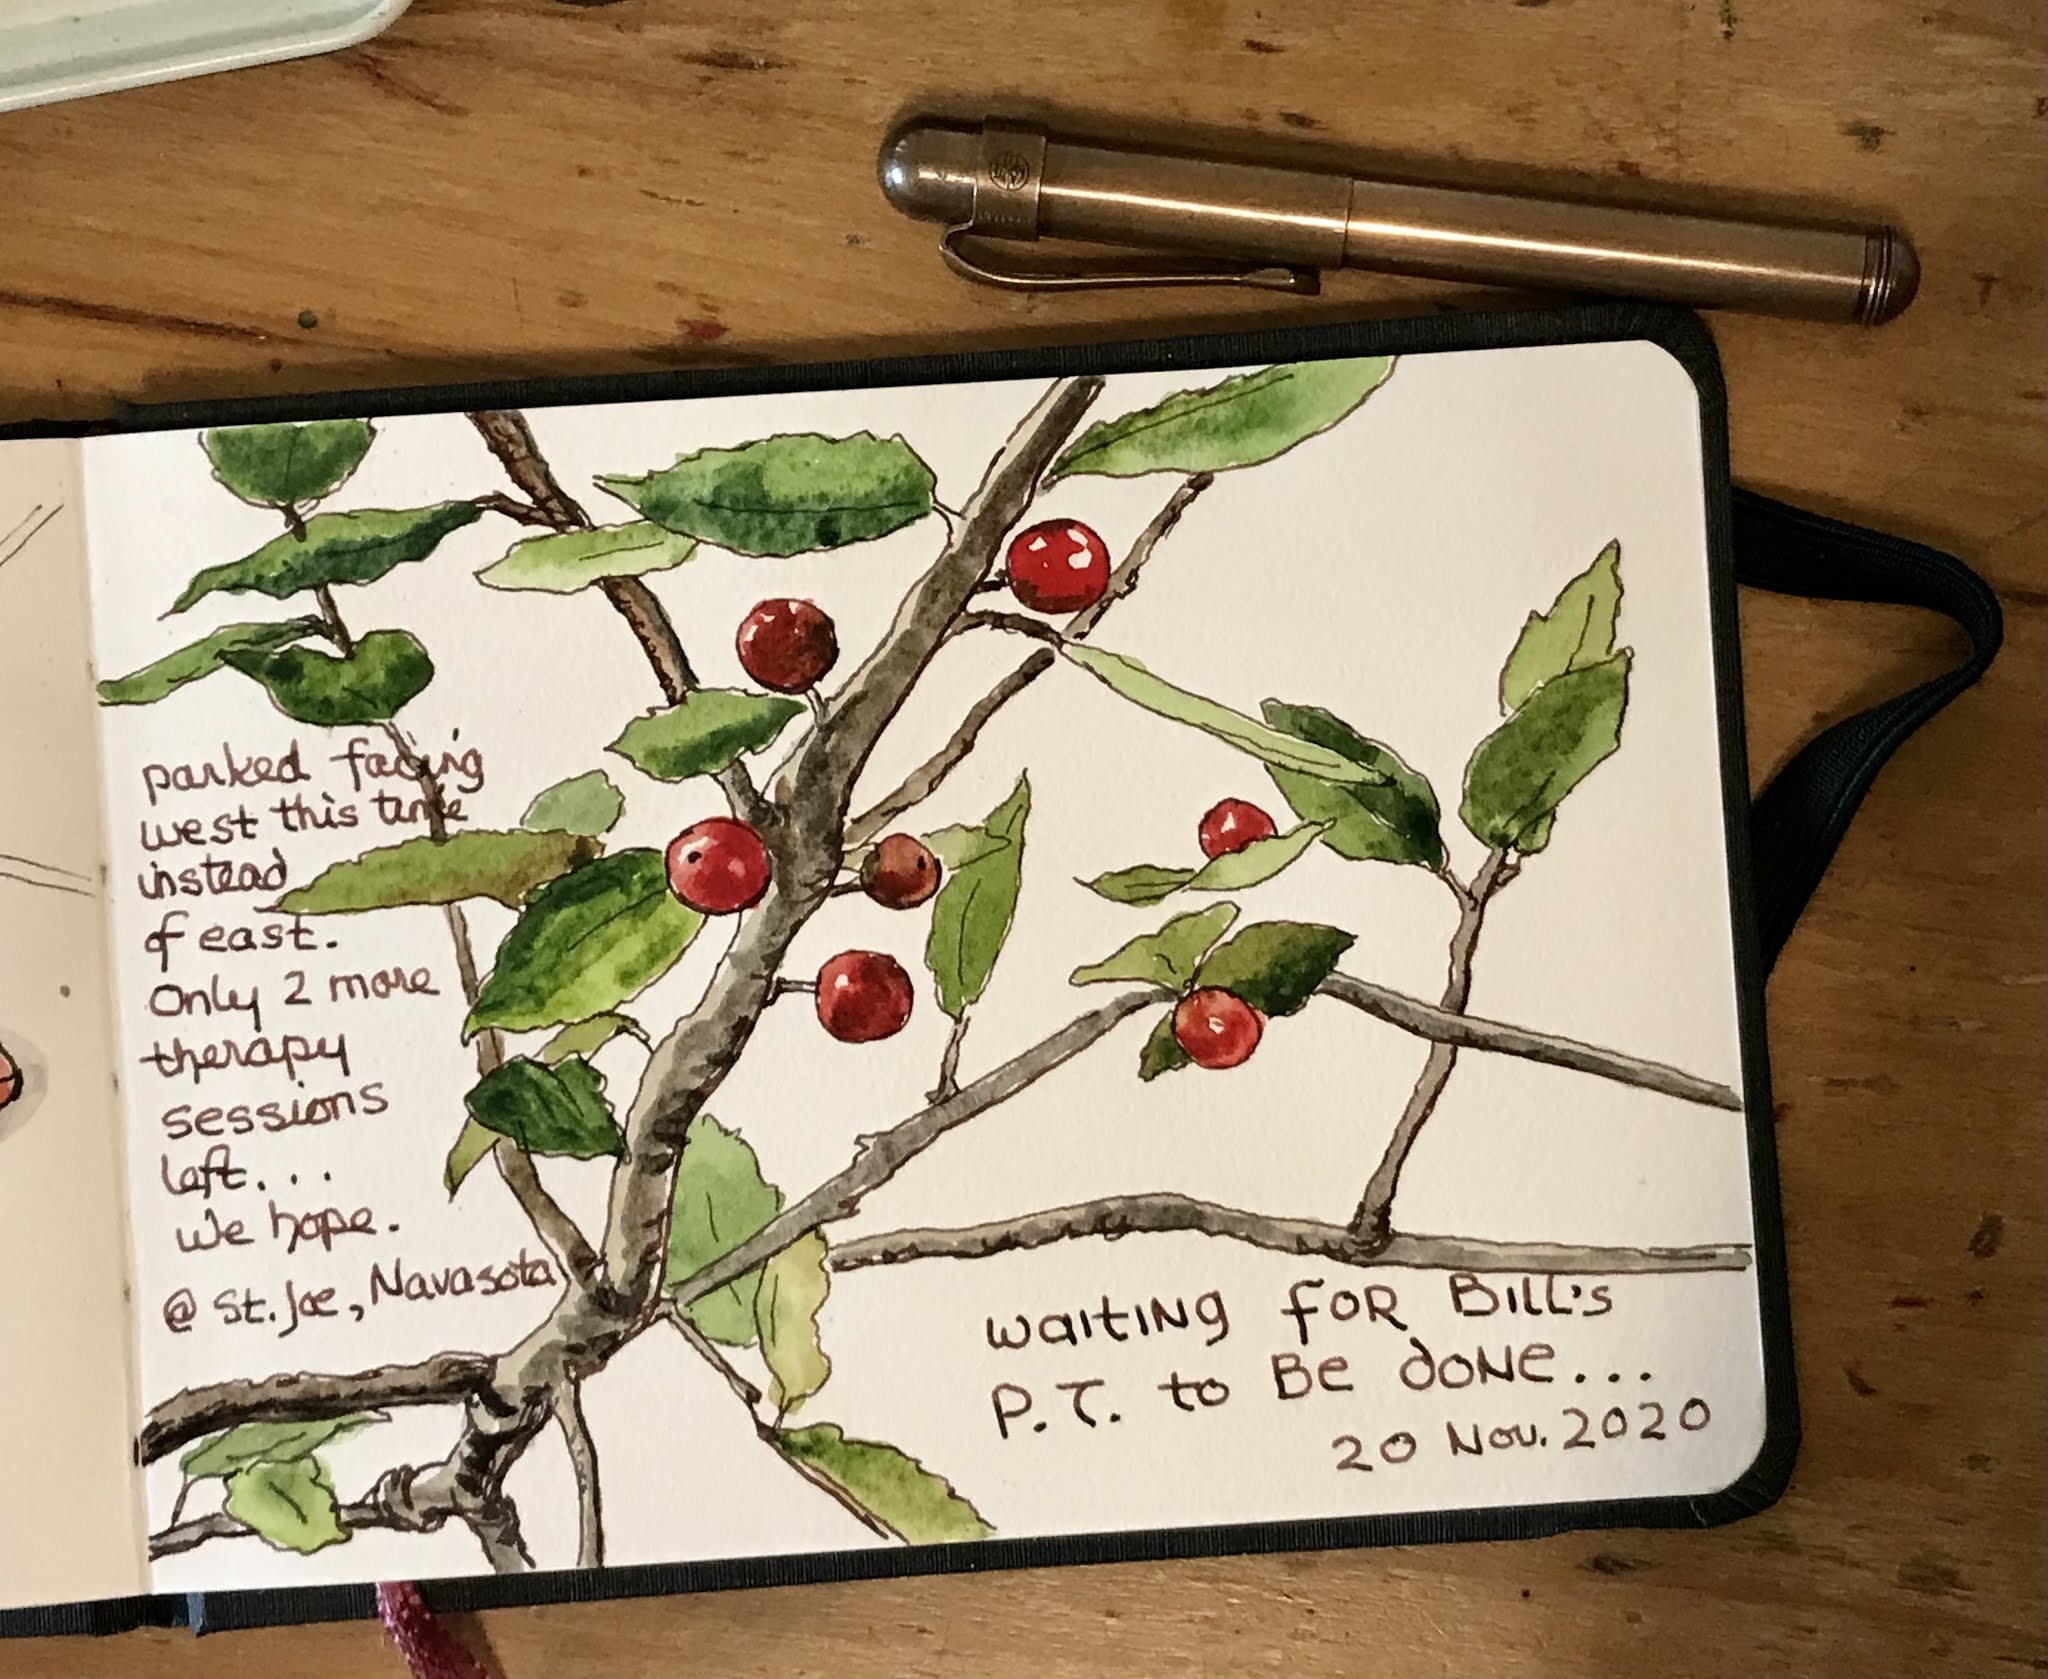 parked facing
west this time
instead
of east.
Only 2 more
therapy
sessions
left...
We hope.
@ St. Joe, Navasota
waiting for Bill's
P.T. to Be done...
20 Nov. 2020